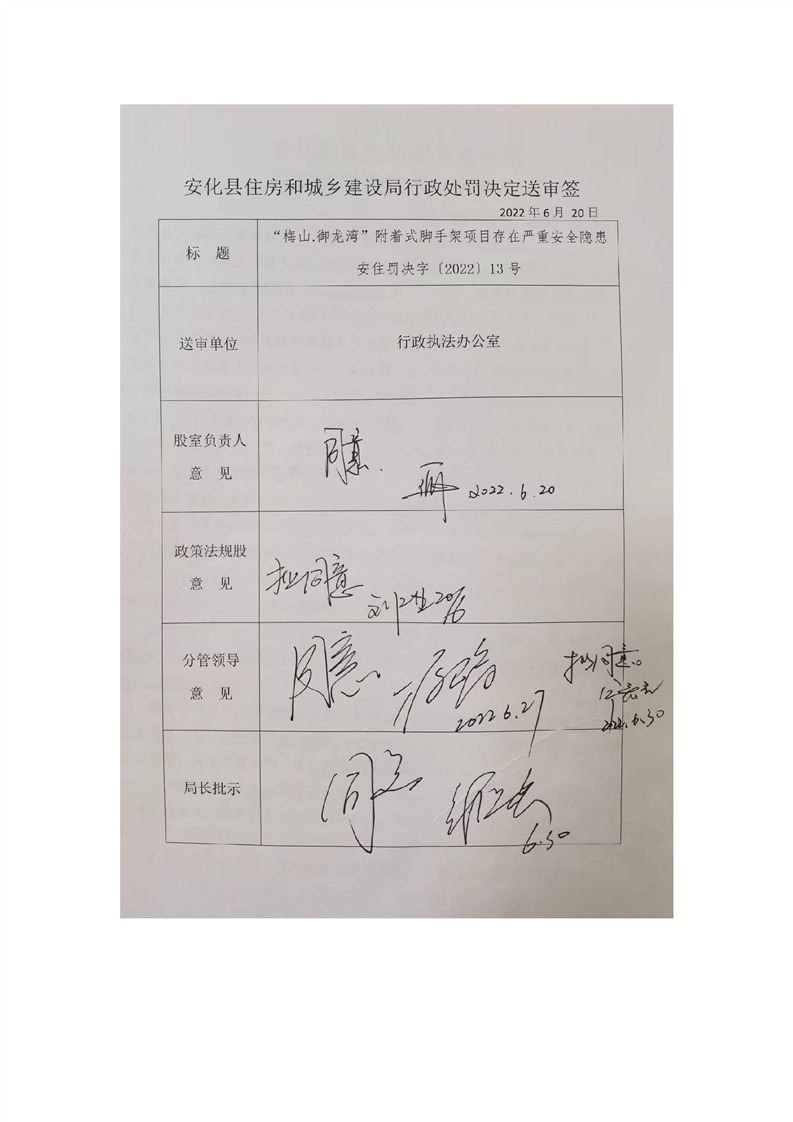 安化县住房和城乡建设局行政处罚决定送审签
2022年6月 20日
标 题
“梅山.御龙湾”附着式脚手架项目存在严重安全隐患
安住罚决字〔2022〕13号
送审单位
行政执法办公室
股室负责人
意 见
同意.
2022.6.20
政策法规股
意 见
拟同意
分管领导
意 见
同意
2022.6.27
拟同意。
2022.6.30
局长批示
同意
6.30